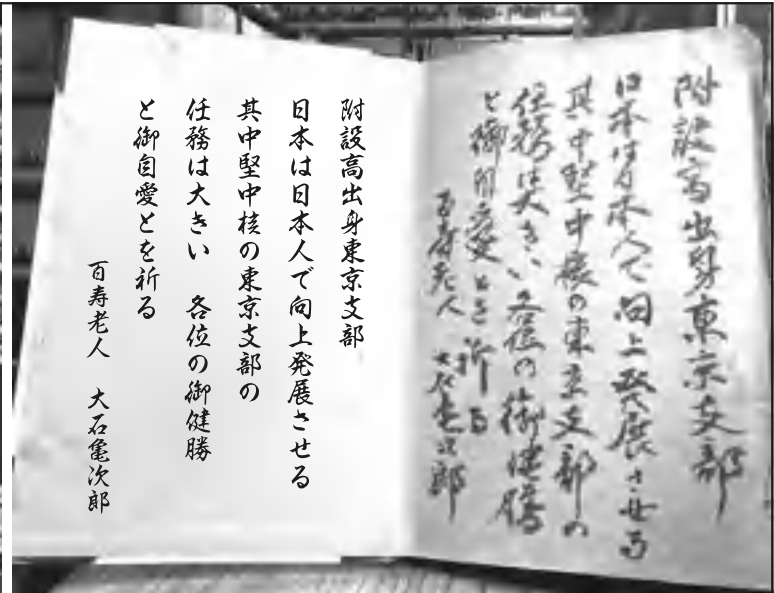 附設高出身東京支部
日本は日本人で向上発展させる
其中堅中核の東京支部の
任務は大きい 各位の御健勝
と御自愛とを祈る
百寿老人 大石亀次郎
附設高出身東京支部
日本は日本人で向上発展させる
其中堅中核の東京支部の
任務は大きい 各位の御健勝
と御自愛とを祈る
百寿老人 大石亀次郎